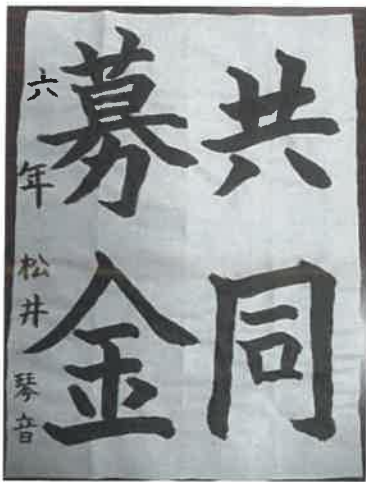 共同
募金
六年 松井琴音